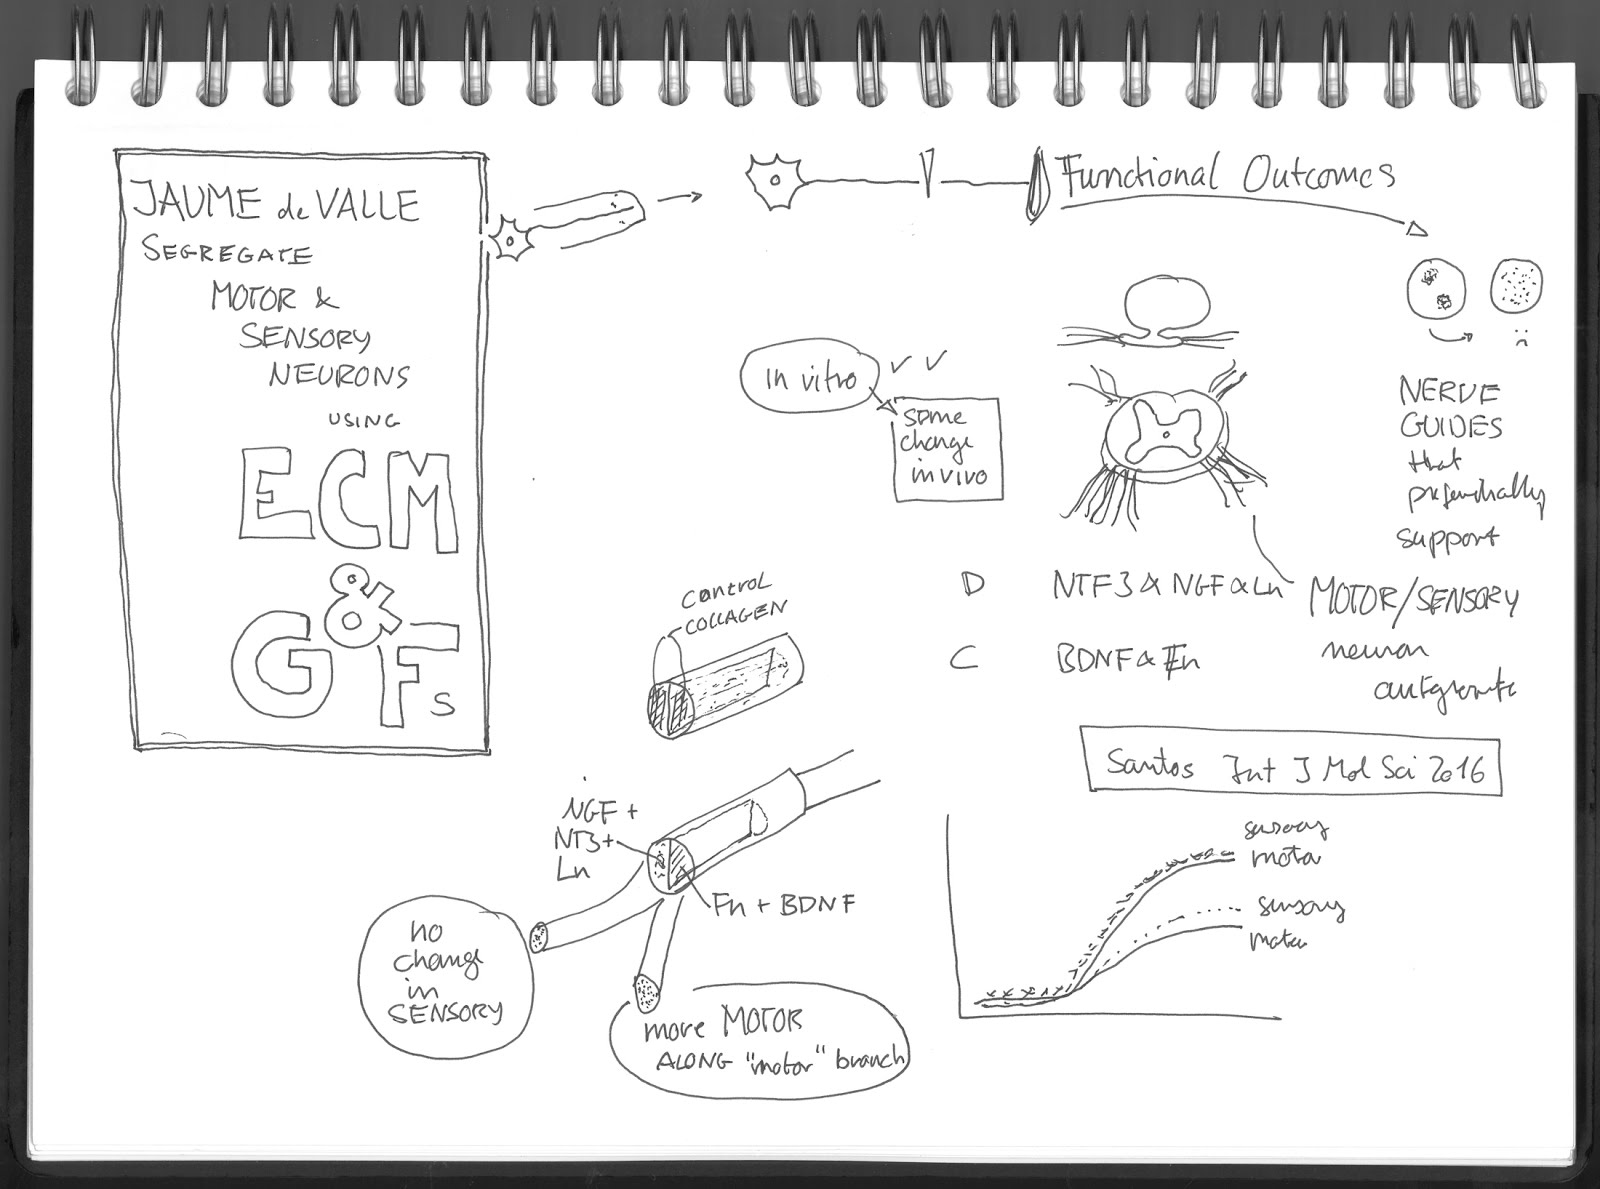 JAUME de VALLE
SEGREGATE
MOTOR &
SENSORY
NEURONS
USING
ECM
&
GFs
Functional Outcomes
In vitro ✓ ✓
some
change
in vivo
NERVE
GUIDES
that
preferentially
support
MOTOR/SENSORY
neuron
D NTF3 & NGF & Ln
C BDNF & Fn
control
COLLAGEN
NGF +
NT3+
Ln
Fn + BDNF
no
change
in
SENSORY
more MOTOR
ALONG "motor" branch
Santos Int J Mol Sci 2016
sensory
motor
sensory
motor